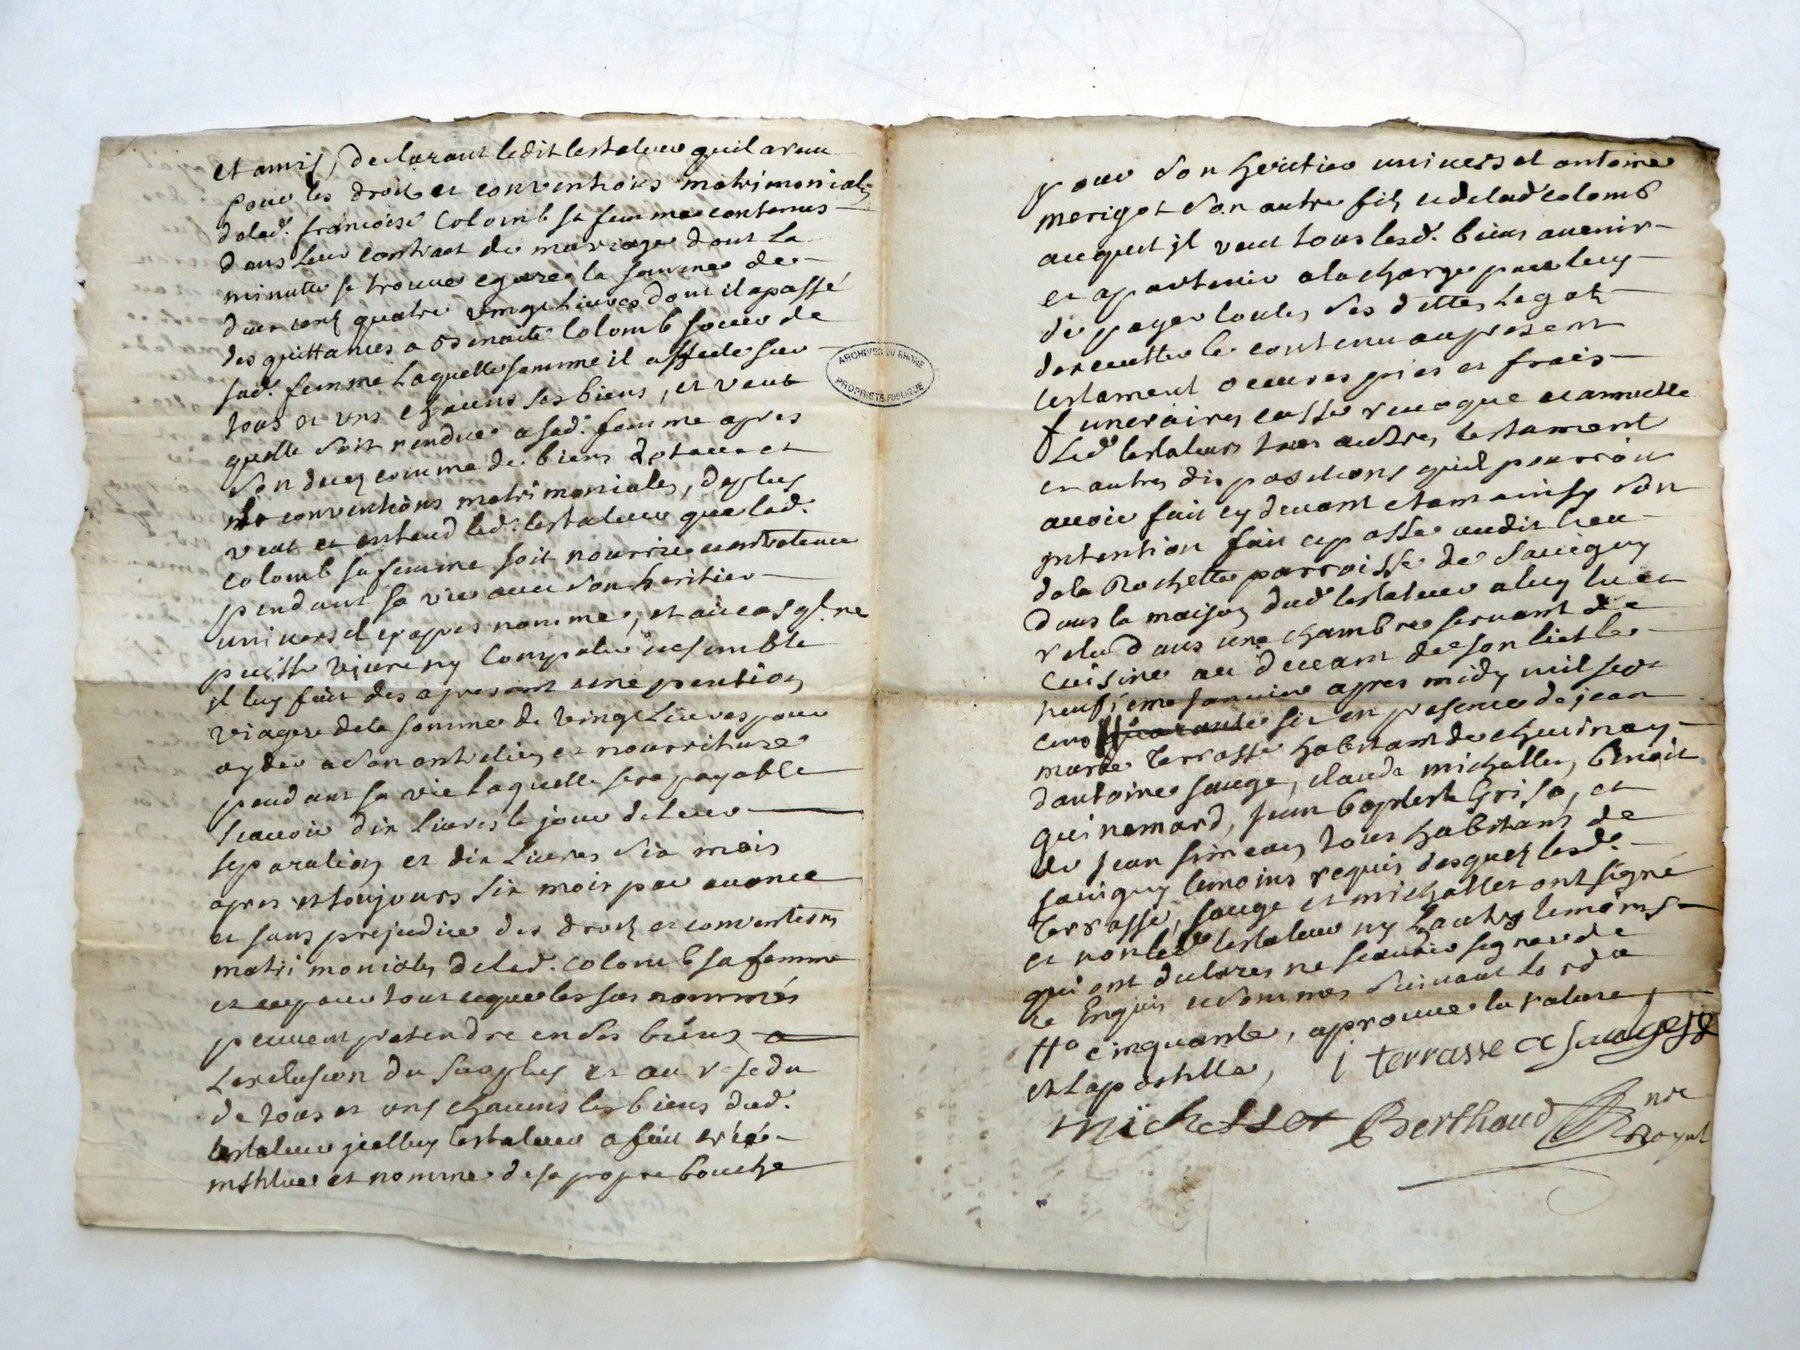 et amis, declarant ledit testateur quil a reçu
pour les droits et conventions matrimoniales
de lad. françoise Colomb sa femme contenus
dans leur contract de mariage dont la
minutte se trouve egarée la somme de
deux cens quatre vingt Livres dont il a passé
des quittances a benoite Colomb soeur de
sad. femme Laquelle somme il affecte sur
tous et uns chacuns ses biens, et veut
quelle soit rendue a sad. femme apres
son deces comme de biens dotaux et
conventions matrimoniales, de plus
veut et entend led. testateur que lad.
Colomb sa femme soit nourrie entretenue
pendant sa vie avec son heritier
universel cy apres nommé, et au cas qls. ne
puisse vivre ny compatir ensemble
il luy fait des apresent une pention
viagere de la somme de vingt Livres pour
ayder a son entretien et nourriture
pendant sa vie laquelle sera payable
scavoir dix Livres le jour de leur
separation et dix Livres six mois
apres et toujours six mois par avance
et sans prejudice des droits et conventions
matrimoniales de lad. Colomb sa femme
et ce pour tout ce que les sus nommés
peuvent pretendre en ses biens a
Lexclusion du surplus et au residu
de tous et uns chacuns les biens dud.
testateur icelluy testateur a fait créé
institue et nomme de sa propre bouche
pour son heritier universel antoine
merigot son autre fils et de lad. Colomb
auquel il veut tous lesd. biens avenir
et apartenir a la charge par luy
de payer toutes ses dettes Legats
dexecutter le contenu au present
testament oeuvres pies et frais
funeraires casse revoque et annulle
Led. testateur tous autres testament
et autres dispositions quil pourroit
avoir fait cy devant etam ainsy son
intention fait et passé audit lieu
de la Rochette parroisse de Savigny
dans la maison dud. testateur a luy lu et
relu dans une chambre servant de
cuisine au devant de son lict le
neufieme janvier apres midy mil sept
cens quarante six en presence de jean
marie Terrasse habitant de chevinay
dantoine sauge, claude michallet, benoit
guinamard, jean baptiste Griso, et
de jean simean tous habitans de
savigny temoins requis desquels lesd.
Terrasse, sauge et michallet ont signé
et non led. testateur ny Lautres temoins
qui ont declarez ne scavoir signer de
ce Enquis et sommes suivant lord.ce
cinquante, aprouve la rature
et Lapostille,
j terrasse c sauge
michallet Berthaud nre
Royal
ARCHIVES DU RHONE
PROPRIETE PUBLIQUE